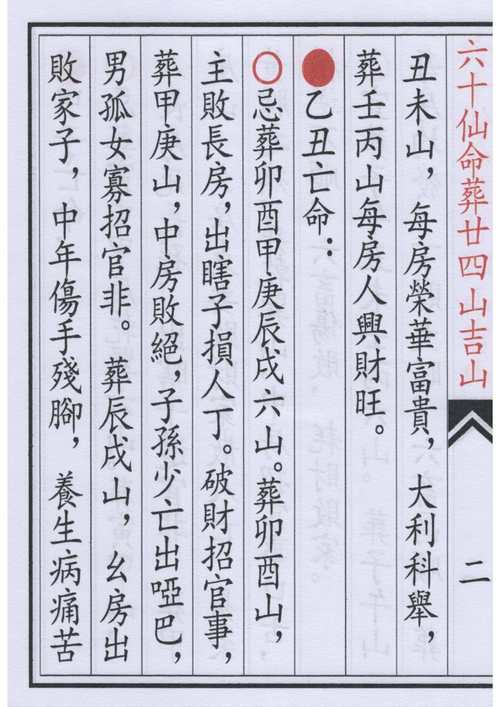 六十仙命葬廿四山吉山
二
丑未山，每房榮華富貴，大利科舉，
葬壬丙山每房人興財旺。
乙丑亡命：
忌葬卯酉甲庚辰戌六山。葬卯酉山，
主敗長房，出瞎子損人丁。破財招官事，
葬甲庚山，中房敗絕，子孫少亡出啞巴，
男孤女寡招官非。葬辰戌山，幺房出
敗家子，中年傷手殘腳，養生病痛苦